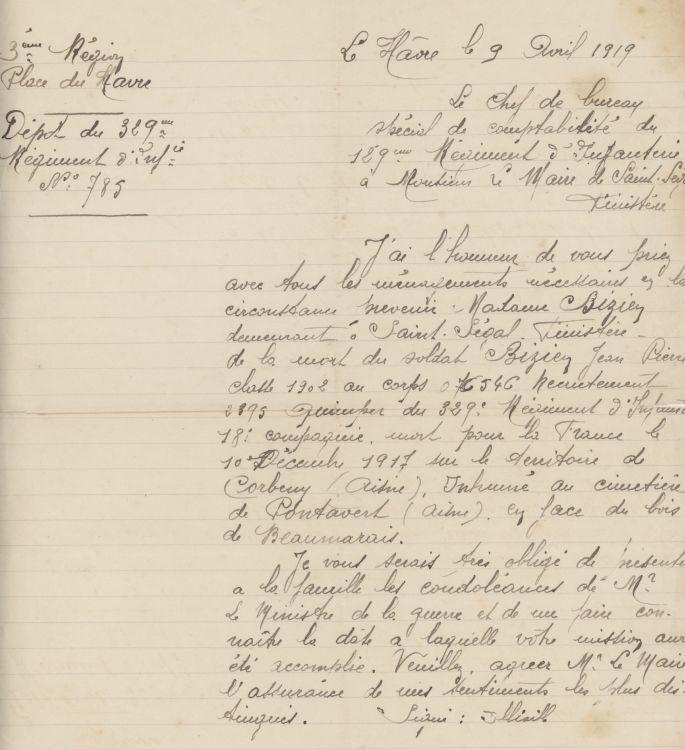 3ème Région
Place du Havre
Dépôt du 329me
Régiment d'Infie
No 785
Le Hâvre le 9 Avril 1919
Le Chef de bureau
spécial de comptabilité du
129me Régiment d'Infanterie
à Monsieur le Maire de Saint-Ség
Finistère
J'ai l'honneur de vous prier
avec tous les ménagements nécessaires en la
circonstance prevenir Madame Bizien
demeurant à Saint-Ségal Finistère
de la mort du soldat Bizien Jean Pierre
classe 1902 au corps 546 Recrutement
2395 Quimper du 329e Régiment d'Infanterie
18e compagnie, mort pour la France le
10 Décembre 1917 sur le territoire de
Corbeny (Aisne), Inhumé au cimetière
de Pontavert (Aisne), en face du bois
de Beaumarais.
Je vous serais très obligé de présenter
a la famille les condoléances de Mr
Le Ministre de la guerre et de me faire con-
naître la date a laquelle votre mission aura
été accomplie. Veuillez, agreer Mr Le Maire
l'assurance de mes sentiments les plus dis-
tingués. Signé :